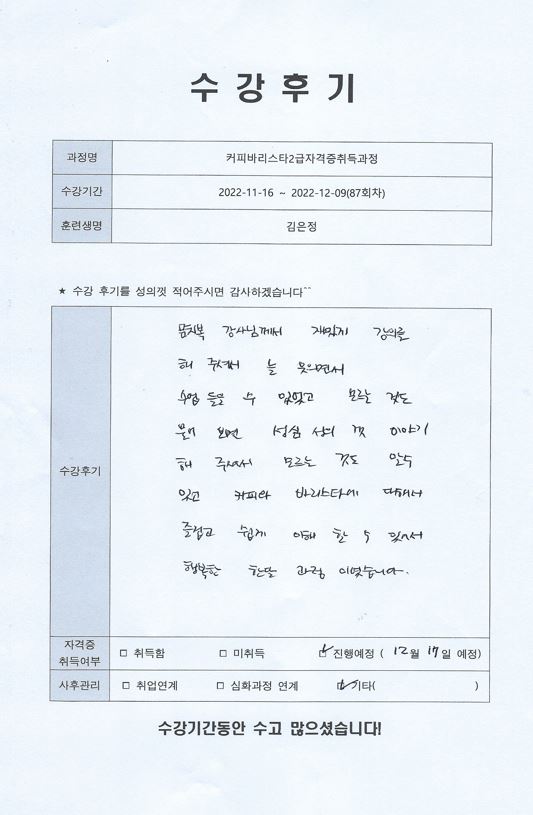 수강후기
과정명 커피바리스타2급자격증취득과정
수강기간 2022-11-16 ~ 2022-12-09(87회차)
훈련생명 김은정
★ 수강 후기를 성의껏 적어주시면 감사하겠습니다^^
수강후기
강사님께서 재밌게 강의를
해 주셔서 늘 웃으면서
수업 들을 수 있었고 모르는 것도
물어 보면 성심 성의 껏 이야기
해 주셔서 모르는 것도 알수
있고 커피와 바리스타에 대해서
즐겁고 쉽게 이해 할 수 있어서
행복한 한달 과정 이었습니다.
자격증
취득여부 □ 취득함 □ 미취득 ☑ 진행예정 ( 12월 17일 예정)
사후관리 □ 취업연계 □ 심화과정 연계 ☑ 기타( )
수강기간동안 수고 많으셨습니다!